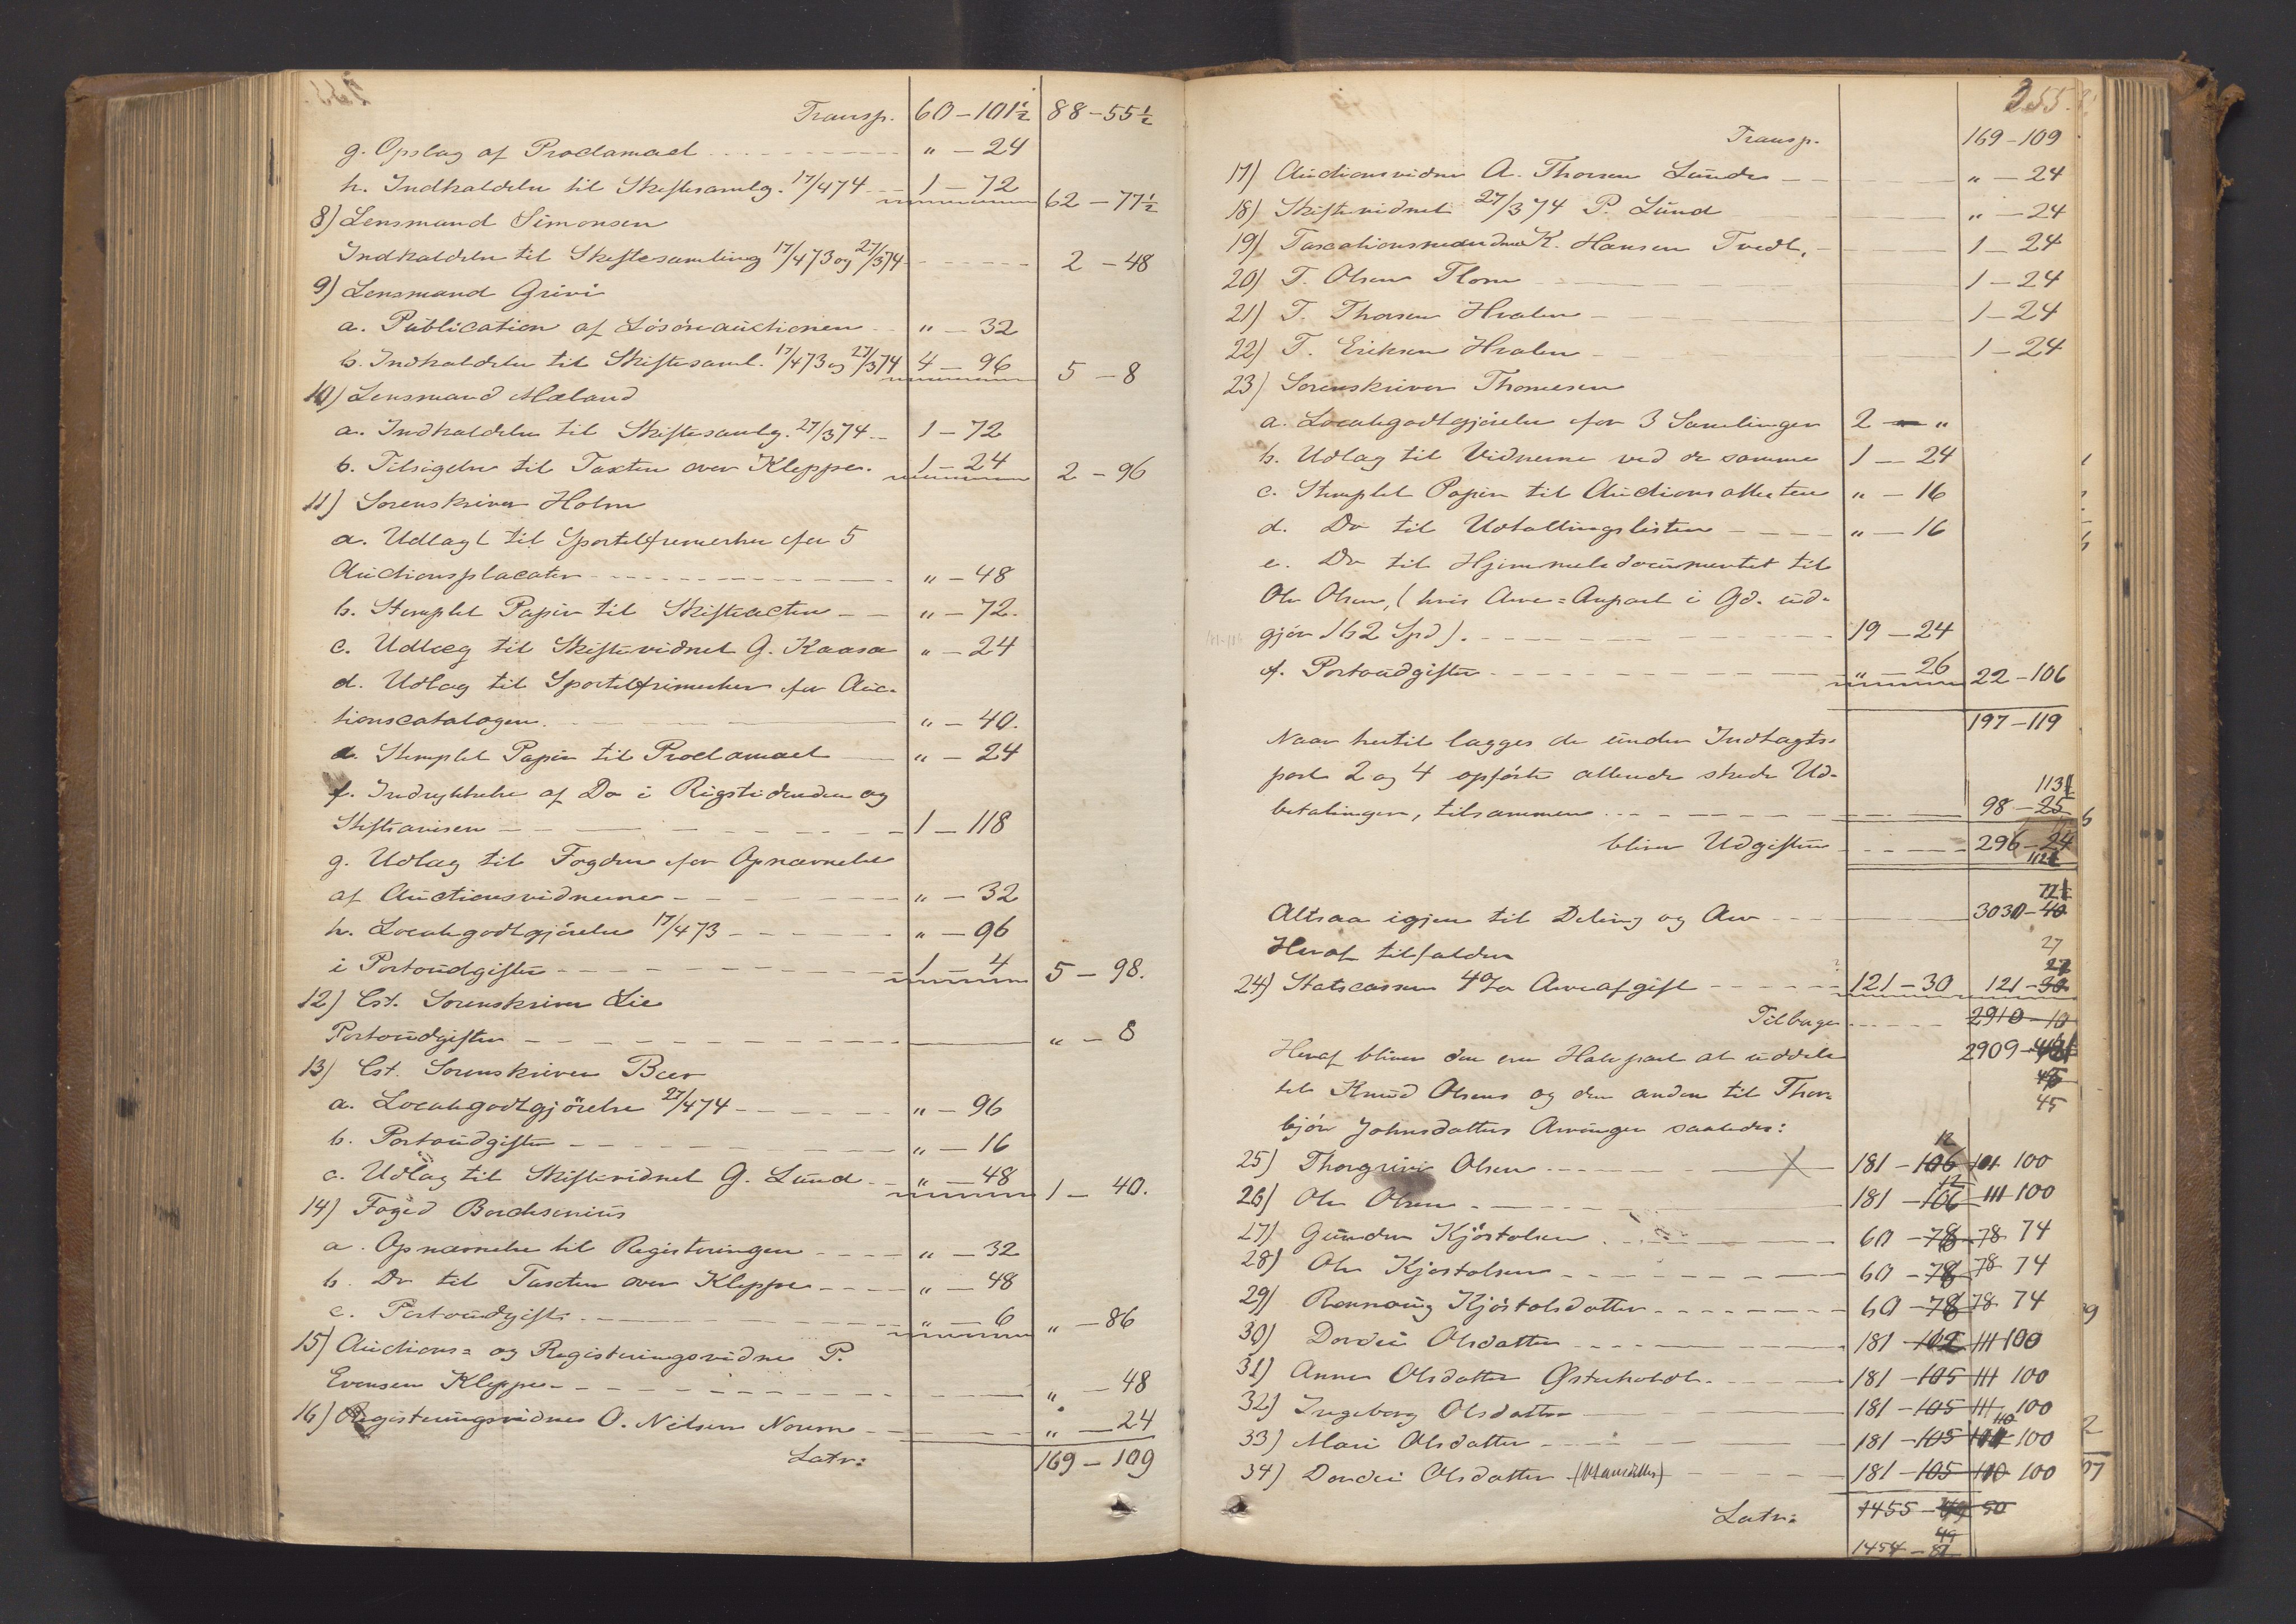 Transp. 60 – 101½ 88 – 55½
g. Opslag af Proclamaet " – 24
h. Indkaldelse til Skiftesamlg. 17/4 74 1 – 72 62 – 77½
8) Lensmand Simonsen
Indkaldelse til Skiftesamling 17/4 73 og 27/3 74 2 – 48
9) Lensmand Grivi
a. Publication af Løsøreauctionen " – 32
b. Indkaldelse til Skiftesaml. 17/4 73 og 27/3 74 4 – 96 5 – 8
10) Lensmand Mæland
a. Indkaldelse til Skiftesamlg. 27/3 74 1 – 72
b. Tilsigelse til Taxten over Kleppe. 1 – 24 2 – 96
11) Sorenskriver Holm
a. Udlagt til Sportelfrimerker for 5
Auctionsplacater " – 48
b. Stemplet Papir til Skifteacten " – 72.
c. Udlæg til Skiftevidnet G. Kaasa " – 24
d. Udlag til Sportelfrimerker for Auc-
tionscatalogen " – 40.
e. Stemplet Papir til Proclamaet " – 24
f. Indrykkelse af Do i Rigstidenden og
Stiftsavisen 1 – 118
g. Udlag til Fogden for Opnævnelse
af Auctionsvidnerne " – 32
h. Localegodtgjørelse 17/4 73 " – 96
i Portoudgifter 1 – 4 5 – 98.
12) Cst. Sorenskriver Lie
Portoudgifter " – 8
13) Cst. Sorenskriver Beer
a. Localegodtgjørelse 27/4 74 " – 96
b. Portoudgifter " – 16
c. Udlag til Skiftevidnet G. Lund " – 48 1 – 40.
14) Foged Borchsenius
a. Opnævnelse til Registeringen " – 32
b. Do til Taxten over Kleppe " – 48
c. Portoudgift " – 6 " – 86
15) Auctions= og Registeringsvidne P.
Evensen Kleppe " – 48
16) Registeringsvidne O. Nilsen Nourne " – 24
Latr: 169 – 109
355.
Transp. 169 – 109
17) Auctionsvidne A. Thorsen Lunde " – 24
18) Skiftevidnet 27/3 74 P. Lund " – 24
19) Taxationsmændene K. Hansen Tvedt, 1 – 24
20) T. Olsen Flom 1 – 24
21) T. Thorsen Hvalen 1 – 24
22) T. Eriksen Hvalen 1 – 24
23) Sorenskriver Thomesen
a. Localegodtgjørelse for 3 Samlinger 2 – "
b. Udlag til Vidnerne ved de samme 1 – 24
c. Stemplet Papir til Auctionsattesten " – 16
d. Do til Udtallingslisten " – 16
e. Do til Hjemmelsdocumentet til
Ole Olsen, (hvis Arve=Anpart i Gd. ud-
gjør 162 Spd). 19 – 24
f. Portoudgifter " – 26 22 – 106
197 – 119
Naar hertil lægges de under Indtægts-
post 2 og 4 opførte allerede skede Ud- 113½
betalinger, tilsammen 98 – 25
bliver Udgifter 296 – 24
112½
72½
Altsaa igjen til Deling og Arv 3030 – 40
Heraf tilfalder 27
24) Statscassen 4% Arveafgift 121 – 30 121 – 30
Tilbage 2910 – 10
Heraf bliver den ene Halvpart at uddele 2909 –
til Knud Olsens og den anden til Thor- 45
bjør Johnsdatters Arvinger saaledes:
12
25) Thorgrim Olsen 181 – 106 100
26) Ole Olsen 181 – 106 111 100
27) Gunder Kjøstolsen 60 – 78 78 74
28) Ole Kjøstolsen 60 – 78 78 74
29) Rannaug Kjøstolsdatter 60 – 78 78 74
30) Dordei Olsdatter 181 – 102 111 100
31) Anne Olsdatter Østerholdt 181 – 105 111 100
32) Ingeborg Olsdatter 181 – 105 111 100
33) Mari Olsdatter 181 – 105 110 100
34) Dordei Olsdatter 181 – 105 110 100
Latr: 1455 – 50
49
1454 – 81